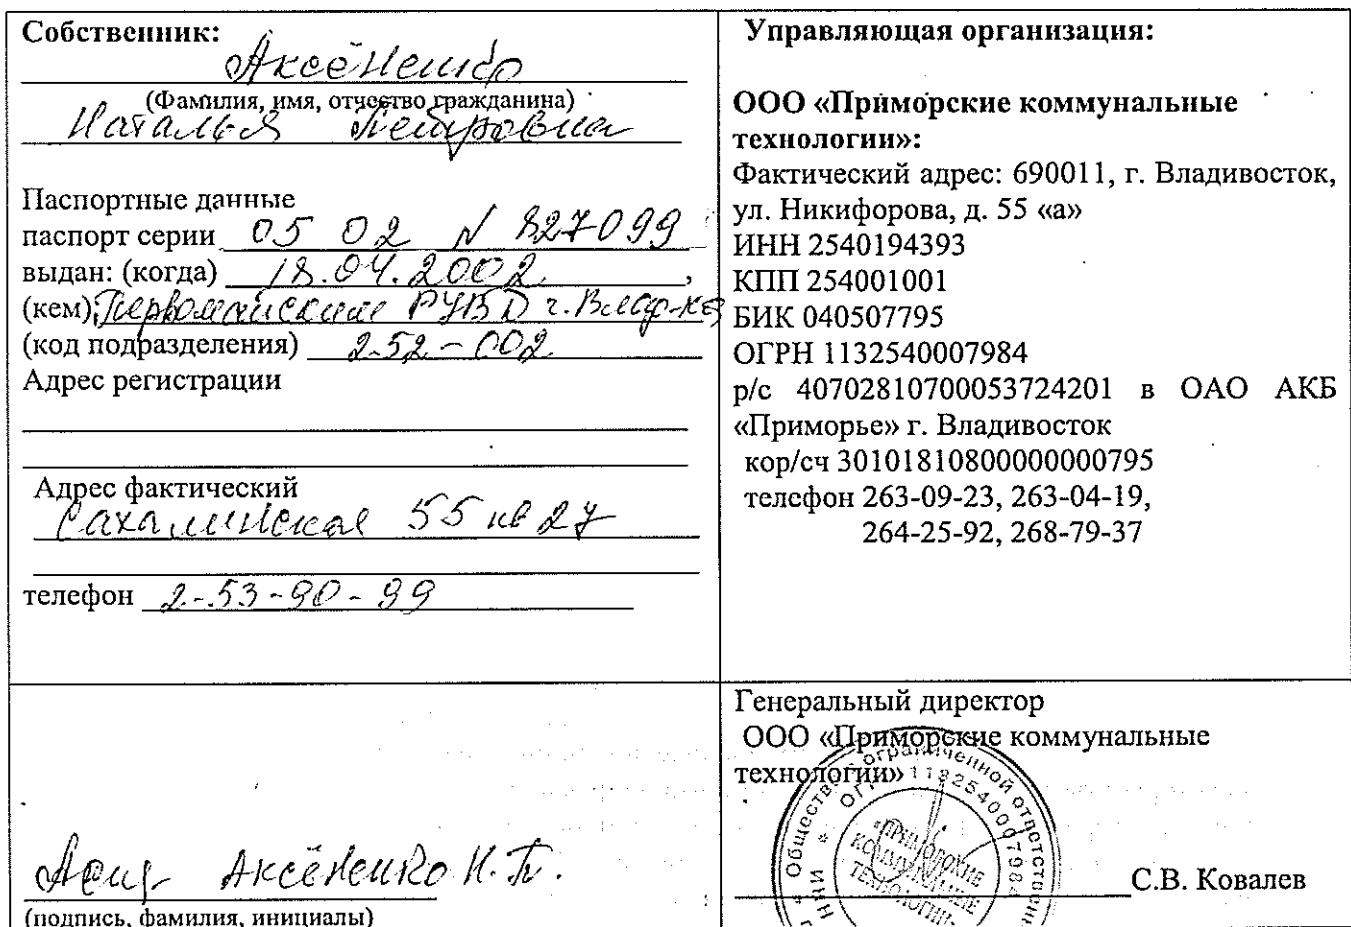 Собственник:
Аксёненко
(Фамилия, имя, отчество гражданина)
Наталья Петровна
Паспортные данные
паспорт серии 05 02 N 827099
выдан: (когда) 18.04.2002,
(кем) Первомайским РУВД г. Влад-ка
(код подразделения) 252-002
Адрес регистрации
Адрес фактический
Сахалинская 55 кв 27
телефон 2-53-90-99
Управляющая организация:
ООО «Приморские коммунальные
технологии»:
Фактический адрес: 690011, г. Владивосток,
ул. Никифорова, д. 55 «а»
ИНН 2540194393
КПП 254001001
БИК 040507795
ОГРН 1132540007984
р/с 40702810700053724201 в ОАО АКБ
«Приморье» г. Владивосток
кор/сч 30101810800000000795
телефон 263-09-23, 263-04-19,
264-25-92, 268-79-37
Аксёненко Н.П.
(подпись, фамилия, инициалы)
Генеральный директор
ООО «Приморские коммунальные
технологии»
С.В. Ковалев
«ПРИМОРСКИЕ
КОММУНАЛЬНЫЕ
ТЕХНОЛОГИИ»